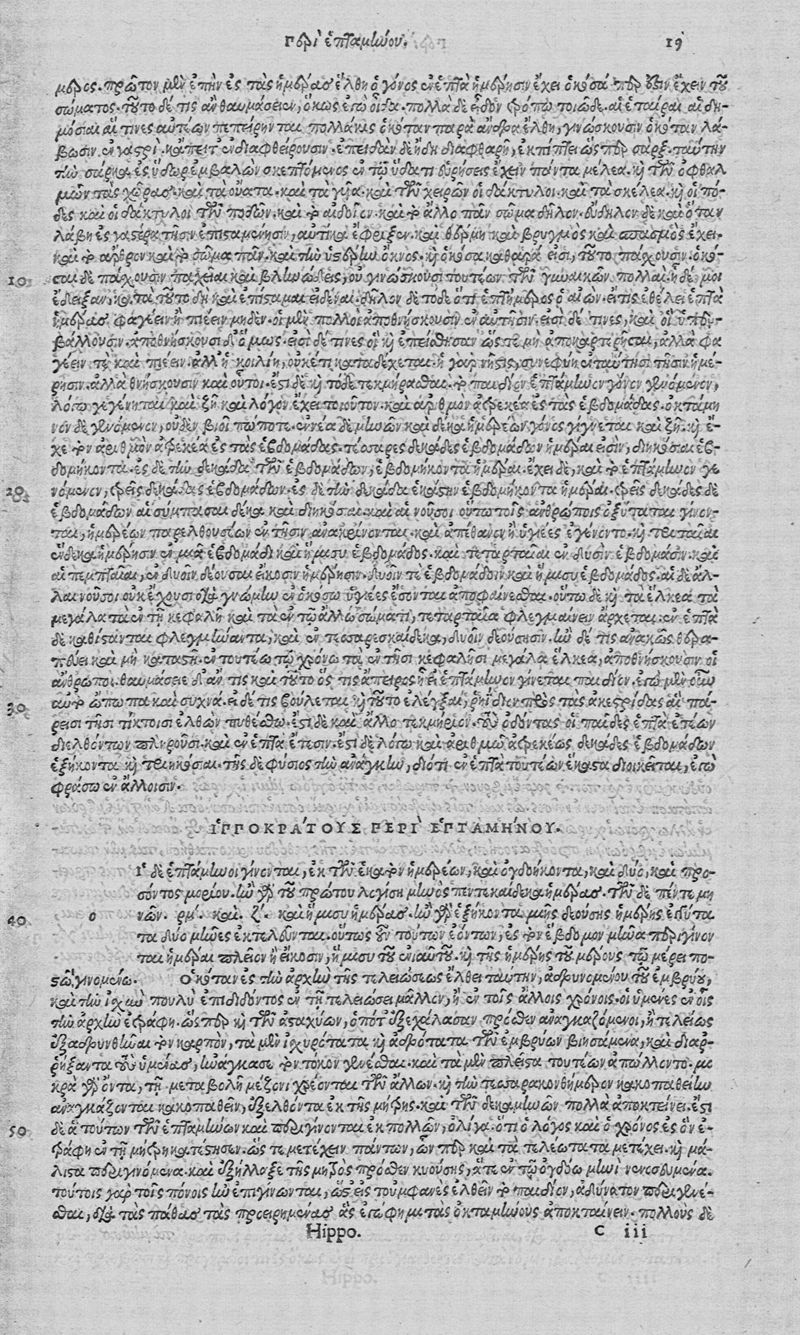 Περὶ ἑπταμήνου. 19
μερος. πρῶτον μὲν ἐπὴν ἐς τὰς ἡμέρας ἔλθῃ ὁ γόνος ἐν ἑπτὰ ἡμέρῃσιν ἔχει ὁκόσα περ ἔχειν τοῦ
σώματος. τοῦτο δέ τις ἂν θαυμάσειεν, ὅκως ἐγὼ οἶδα. πολλὰ δὲ εἶδον τρόπῳ τοιῷδε. αἱ ἑταῖραι αἱ δη-
μόσιαι αἵ τινες αὐτέων πεπείρηνται πολλάκις ὁκόταν παρὰ ἄνδρα ἔλθῃ, γινώσκουσιν ὁκόταν λά-
βωσιν ἐν γαστρί. κἄπειτ' ἐνδιαφθείρουσιν. ἐπειδὰν δὲ ἤδη διαφθαρῇ, ἐκπίπτει ὥσπερ σάρξ. ταύτην
τὴν σάρκα ἐς ὕδωρ ἐμβαλὼν σκεπτόμενος ἐν τῷ ὕδατι εὑρήσεις ἔχειν πάντα μέλεα. καὶ τῶν ὀφθαλ
μῶν τὰς χώρας. καὶ τὰ οὔατα. καὶ τὰ γυῖα. καὶ τῶν χειρῶν οἱ δάκτυλοι. καὶ τὰ σκέλεα. καὶ οἱ πό-
δες καὶ οἱ δάκτυλοι τῶν ποδῶν. καὶ τὸ αἰδοῖον. καὶ τὸ ἄλλο πᾶν σῶμα δῆλον. εὔδηλον δὲ καὶ ὅταν
λάβῃ ἐς γαστέρα τῇσιν ἐπισταμένῃσιν, αὐτίκα ἔφριξεν. καὶ θέρμη καὶ βρυγμὸς καὶ σπασμὸς ἔχει.
καὶ τὸ ἄρθρον καὶ τὸ σῶμα πᾶν. καὶ τὴν ὑστέρην ὄκνος. καὶ ὁκόσαι καθαραί εἰσι, τοῦτο πάσχουσιν. ὁκό-
10 σαι δὲ πάχουσιν παχεῖαι καὶ βλεννώδεις, οὐ γινώσκουσι τουτέων τῶν γυναικῶν πολλαί. ᾗ δέ μοι
ἔδειξαν, κατὰ τοῦτο δὴ καὶ ἐπίσταμαι εἰδέναι. δῆλον δὲ τόδε ὅτι ἑπτήμερος ὁ αἰών. εἴ τις ἐθέλει ἑπτὰ
ἡμέρας φαγέειν ἢ πιέειν μηδέν. οἱ μὲν πολλοὶ ἀποθνήσκουσιν ἐν αὐτῇσιν. εἰσὶ δέ τινες, καὶ οἳ ὑπερ-
βάλλουσιν. ἀποθνήσκουσι δ' ὅμως. εἰσὶ δέ τινες οἳ καὶ ἐπείσθησαν ὥστε μὴ ἀποκαρτερῆσαι, ἀλλὰ φα
γέειν τε καὶ πιέειν. ἀλλ' ἡ κοιλίη, οὐκέτι καταδέχεται. ἡ γὰρ νῆστις, συνεφύη ἐν ταύτῃσι τῇσιν ἡμέ-
ρῃσιν. ἀλλὰ θνήσκουσιν καὶ οὗτοι. ἔστι δὲ καὶ τόδε τεκμήρασθαι. τὸ παιδίον ἑπτάμηνον γόνον γενόμενον,
λόγῳ γεγένηται καὶ ζῇ. καὶ λόγον ἔχει τοιοῦτον. καὶ ἀριθμὸν ἀτρεκέα ἐς τὰς ἑβδομάδας. ὀκτάμη
νον δὲ γενόμενον, οὐδὲν βιοῖ πώποτε. ἐννέα δὲ μηνῶν καὶ δέκα ἡμερέων γόνος γίγνεται. καὶ ζῇ. καὶ ἔ-
χει τὸν ἀριθμὸν ἀτρεκέα ἐς τὰς ἑβδομάδας. τέσσαρες δεκάδες ἑβδομάδων ἡμέραι εἰσὶν, διηκόσιαι ἑβ-
δομήκοντα. ἐς δὲ τὴν δεκάδα τῶν ἑβδομάδων, ἑβδομήκοντα ἡμέραι. ἔχει δὲ, καὶ τὸ ἑπτάμηνον γε
20 νόμενον, τρεῖς δεκάδας ἑβδομάδων. ἐς δὲ τὴν δεκάδα ἑκάστην ἑβδομήκοντα ἡμέραι. τρεῖς δεκάδες δὲ
ἑβδομάδων αἱ σύμπασαι δέκα καὶ διηκόσιαι. καὶ αἱ νοῦσοι οὕτω τοῖς ἀνθρώποις ὀξύταται γίνον-
ται, ἡμερέων παρελθουσέων ἐν τῇσιν ἀνακρίνονται. καὶ ἀπέθανον ἢ ὑγιέες ἐγένοντο. καὶ τριταῖαι
ἕνδεκα ἡμέρῃσιν ἐν μιᾷ ἑβδομάδι καὶ ἥμισυ ἑβδομάδος. καὶ τεταρταῖαι ἐν δυσὶν ἑβδομάσιν. καὶ
αἱ πεμπταῖαι, ἐν δυσὶν δέουσαι εἴκοσιν ἡμέρῃσιν. δυοῖν τε ἑβδομάδοιν καὶ ἥμισυ ἑβδομάδος. αἱ δὲ ἄλ-
λαι νοῦσοι οὐκ ἔχουσι διαγνώμην ἐν ὁκόσῳ ὑγιέες ἔσονται ἀποφαίνεσθαι. οὕτω δὲ καὶ τὰ ἕλκεα τὰ
μεγάλα τὰ ἐν τῇ κεφαλῇ καὶ τὰ ἐν τῷ ἄλλῳ σώματι, τεταρταῖα φλεγμαίνειν ἄρχεται. ἐν ἑπτὰ
δὲ καθίσταται φλεγμήναντα, καὶ ἐν τεσσαρεσκαίδεκα, δυοῖν δεούσῃσιν. ἢν δέ τις ἀνακῶς θερα-
πεύει καὶ μὴ καταστῇ ἐν τουτέῳ τῷ χρόνῳ τὰ ἐν τῇσι κεφαλῇσι μεγάλα ἕλκεα, ἀποθνήσκουσιν οἱ
ἄνθρωποι. θαυμάσειε δ' ἄν τις καὶ τοῦτο ὅς τις ἄπειρος ἢ εἰ ἑπτάμηνον γίνεται παιδίον. ἐγὼ μὲν οὖν
30 αὐτὸ ὄπωπα καὶ συχνά. εἰ δέ τις βούλεται καὶ τοῦτο ἐλέγξαι, ῥηΐδιον πρὸς τὰς ἀκεστρίδας αἳ πά-
ρεισι τῇσι τικτούσῃσι ἐλθὼν πυθέσθω. ἔστι δὲ καὶ ἄλλο τεκμήριον. τοὺς ὀδόντας οἱ παῖδες ἑπτὰ ἐτέων
διελθόντων πληροῦσι. καὶ ἐν ἑπτὰ ἔτεσιν. ἔστι δὲ λόγῳ καὶ ἀριθμῷ ἀτρεκέως δεκάδες ἑβδομάδων
ἑξήκοντα καὶ τριηκόσιαι. τῆς δὲ φύσιος τὴν ἀνάγκην, διότι ἐν ἑπτὰ τουτέων ἕκαστα διοικεῖται, ἐγὼ
φράσω ἐν ἄλλοισιν.
ΙΠΠΟΚΡΑΤΟΥΣ ΠΕΡΙ ΕΠΤΑΜΗΝΟΥ.
Ι δὲ ἑπτάμηνοι γίνονται, ἐκ τῶν ἑκατὸν ἡμερέων, καὶ ὀγδοήκοντα, καὶ δύο, καὶ προ-
σόντος μορίου. ἢν γὰρ τοῦ πρώτου λογίσῃ μηνὸς πεντεκαίδεκα ἡμέρας. τῶν δὲ πέντε μη
40 ο νῶν. ρμ. καὶ. ζ. καὶ ἥμισυ ἡμέρας. ἢν γὰρ ἑξήκοντα μιῆς δεούσης ἡμέρης ἐγγύτα
τα δύο μῆνες ἐκτελεῦνται. οὕτως οὖν τούτων ἐόντων, ἐς τὸν ἕβδομον μῆνα περιγίνον
ται ἡμέραι πλεῖον ἢ εἴκοσιν, ἥμισυ τοῦ ἐνιαυτοῦ. καὶ τῆς ἡμέρης τοῦ μέρους τῷ μέρει προ-
σγινομένῳ. Ὁκόταν ἐς τὴν ἀρχὴν τῆς τελειώσεως ἔλθει ταύτην, ἁδρυνομένου τοῦ ἐμβρύου,
καὶ τὴν ἰσχὺν πουλὺ ἐπιδιδόντος ἐν τῇ τελειώσει μᾶλλον, ἢ ἐν τοῖς ἄλλοις χρόνοις. οἱ ὑμένες ἐν οἷς
τὴν ἀρχὴν ἐτράφη. ὥσπερ καὶ τῶν ἀσταχύων, ὁπότ' ἐξεχάλασαν πρόσθεν ἀναγκαζόμενοι, ἢ τελείως
ἐξαδρυνθῆναι τὸν καρπόν, τὰ μὲν ἰσχυρότατα καὶ ἁδρότατα τῶν ἐμβρύων βιησάμενα, καὶ διαρ-
ρήξαντα τοὺς ὑμένας, ἠνάγκασε τὸν τόκον γενέσθαι. καὶ τὰ μὲν πλεῖστα τουτέων ἀπώλλοντο. μι
κρὰ γὰρ ὄντα, τῇ μεταβολῇ μείζονι χρέονται τῶν ἄλλων. καὶ τὴν τεσσαρακονθήμερον κακοπαθείην
ἀναγκάζονται κακοπαθεῖν, ἐξελθόντα ἐκ τῆς μήτρης. καὶ τῶν δεκαμήνων πολλὰ ἀποκτείνει. ἔστι
50 δὲ ἃ τούτων τῶν ἑπταμήνων καὶ περιγίνονται ἐκ πολλῶν, ὀλίγα. ὅτι ὁ λόγος καὶ ὁ χρόνος ἐς ὃν ἐ-
τράφη ἐν τῇ μήτρῃ κατέστησεν. ὥστε μετέχειν πάντων, ὧν περ καὶ τὰ τελεώτατα μετέχει. καὶ μά-
λιστα περιγινόμενα. καὶ ἐξήλλαξε τῆς μητρὸς πρόσθεν κυούσης, ἅτε ἐν τῷ ὀγδόῳ μηνὶ νενοσευμένα.
τούτοις γὰρ τοῖς πόνοις ἢν ἐπιγίνωνται, ὥστ' εἰς τοὐμφανὲς ἐλθεῖν τὸ παιδίον, ἀδύνατον περιγενέ-
σθαι, διὰ τὰς πάθας τὰς προειρημένας ἃς ἐγώ φημι τὰς ὀκταμήνους ἀποκταίνειν. πολλοὺς δὲ
Hippo. C iii